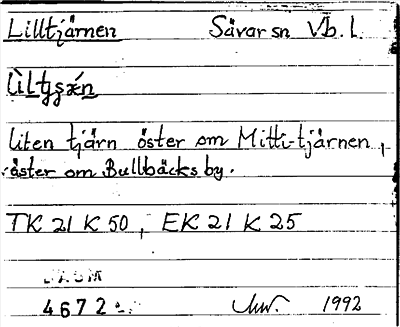 Lilltjärnen Sävar sn Vb. l.
liten tjärn öster om Mitti-tjärnen,
öster om Bullbäcks by.
TK 21 K 50, EK 21 K 25
DAUM
4672
1992